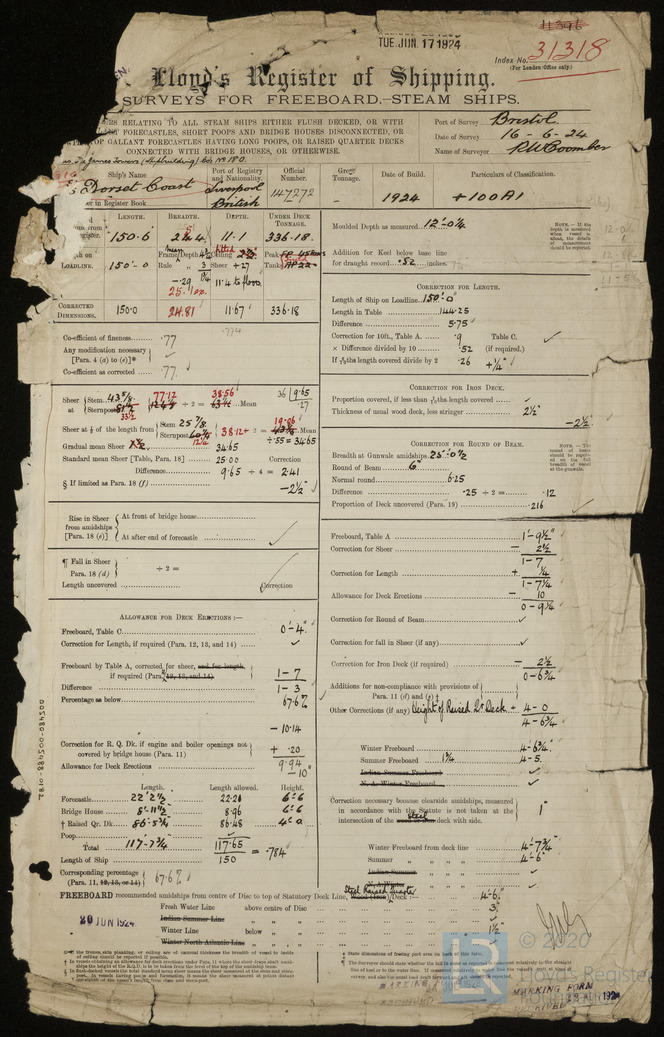 11396
TUE. JUN. 17 1924
Index No. 31318
(For London Office only.)
Lloyd's Register of Shipping.
SURVEYS FOR FREEBOARD.—STEAM SHIPS.
RELATING TO ALL STEAM SHIPS EITHER FLUSH DECKED, OR WITH
FORECASTLES, SHORT POOPS AND BRIDGE HOUSES DISCONNECTED, OR
GALLANT FORECASTLES HAVING LONG POOPS, OR RAISED QUARTER DECKS
CONNECTED WITH BRIDGE HOUSES, OR OTHERWISE.
Port of Survey Bristol
Date of Survey 16-6-24
Name of Surveyor R.W. Coomber
Ship's Name
Port of Registry and Nationality.
Official Number
Gross Tonnage.
Date of Build.
Particulars of Classification.
Dorset Coast
Liverpool
British
147272
1924
+100A1
in Register Book
LENGTH. BREADTH. DEPTH. UNDER DECK TONNAGE.
150.6 11.1 336.18
LOADLINE. 150'-0
CORRECTED DIMENSIONS. 150.0 24.81 11.67 336.18
Co-efficient of fineness .77
Any modification necessary
[Para. 4 (a) to (e)]*
Co-efficient as corrected .77
Sheer at Stem 43 5/8 77.12 38.56
Sternpost ÷ 2 = Mean
Sheer at 1/8 of the length from Stem 25 7/8
Sternpost 38.12 ÷ 2 = 19.06 Mean
÷ .55 = 34.65
Gradual mean Sheer 34.65
Standard mean Sheer [Table, Para. 18] 25.00 Correction
Difference 9.65 ÷ 4 = 2.41
§ If limited as Para. 18 (f) -2½"
Rise in Sheer from amidships [Para. 18 (e)]
At front of bridge house
At after end of forecastle
¶ Fall in Sheer Para. 18 (d) ÷ 2 =
Length uncovered Correction
ALLOWANCE FOR DECK ERECTIONS:—
Freeboard, Table C. 0-4"
Correction for Length, if required (Para. 12, 13, and 14)
Freeboard by Table A, corrected for sheer, and for length,
if required (Para. 12, 13, and 14) 1-7
Difference 1-3
Percentage as below 67.6%
-10.14
Correction for R. Q. Dk. if engine and boiler openings not
covered by bridge house (Para. 11) + .20
Allowance for Deck Erections 9.94
-10"
Length. Length allowed. Height.
Forecastle 22'2½" 22.21 6'-6
Bridge House 8'-11½" 8.96 6'-6
† Raised Qr. Dk. 86'-5¾" 86.48 4'-0
Poop
Total 117-7¾" 117.65
Length of Ship 150 = .784
Corresponding percentage (Para. 11, 12, 13, or 14) 67.6%
Moulded Depth as measured 12'-0¼"
Addition for Keel below base line
for draught record .52 inches.
CORRECTION FOR LENGTH.
Length of Ship on Loadline 150'-0"
Length in Table 144.25
Difference 5.75
Correction for 10ft., Table A. .9 Table C.
× Difference divided by 10 .52 (if required.)
If 6/10ths length covered divide by 2 .26 +¼"
CORRECTION FOR IRON DECK.
Proportion covered, if less than 7/10ths length covered
Thickness of usual wood deck, less stringer 2½"
-2½"
CORRECTION FOR ROUND OF BEAM.
Breadth at Gunwale amidships 25'-0½"
Round of Beam 6"
Normal round 6.25
Difference .25 ÷ 2 = .12
Proportion of Deck uncovered (Para. 19) .216
Freeboard, Table A 1'-9½"
Correction for Sheer - 2½
1-7
Correction for Length + ¼
1-7¼
Allowance for Deck Erections - 10
0-9¼
Correction for Round of Beam
Correction for fall in Sheer (if any)
Correction for Iron Deck (if required) - 2½
0-6¾
Additions for non-compliance with provisions of
Para. 11 (d) and (e) †
Other Corrections (if any) Height of Raised Qr. Deck + 4-0
4-6¾
Winter Freeboard 4-6¾"
Summer Freeboard 1¾ 4-5
Indian Summer Freeboard
N. A. Winter Freeboard
Correction necessary because clearside amidships, measured
in accordance with the Statute is not taken at the
intersection of the Steel deck with side. 1"
Winter Freeboard from deck line 4-7¾"
Summer " " " " 4-6"
Indian Summer
N. A. Winter
FREEBOARD recommended amidships from centre of Disc to top of Statutory Deck Line, Steel Raised Quarter Deck:— 4-6"
Fresh Water Line above centre of Disc 3"
Indian Summer Line " "
Winter Line below " 1½"
Winter North Atlantic Line " "
20 JUN 1924
0820-884500-005480
© 2020
Lloyd's Register
Foundation
MARKING FORM
RECEIVED 1924